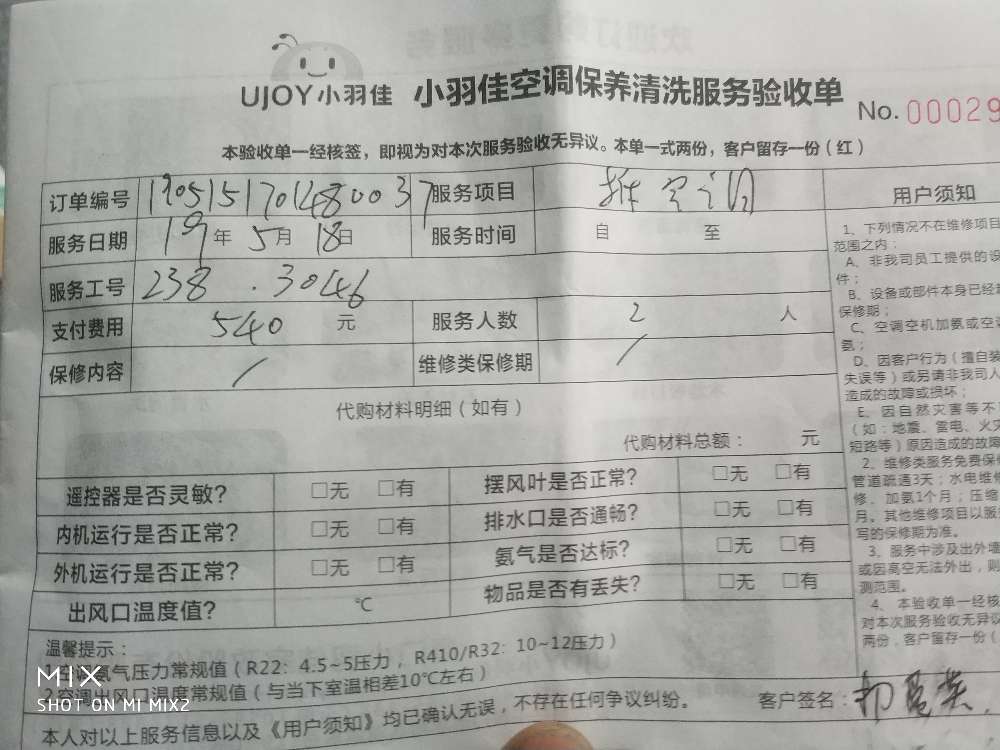 UJOY小羽佳 小羽佳空调保养清洗服务验收单
No. 00029
本验收单一经核签，即视为对本次服务验收无异议。本单一式两份，客户留存一份（红）
订单编号 1905151701480037 服务项目 拆空调
服务日期 19年 5月 18日 服务时间 自 至
服务工号 238 . 3046
支付费用 540 元 服务人数 2 人
保修内容 / 维修类保修期 /
代购材料明细（如有）
代购材料总额： 元
遥控器是否灵敏? □无 □有 摆风叶是否正常? □无 □有
内机运行是否正常? □无 □有 排水口是否通畅? □无 □有
外机运行是否正常? □无 □有 氨气是否达标? □无 □有
出风口温度值? ℃ 物品是否有丢失? □无 □有
温馨提示：
1.空调氨气压力常规值（R22：4.5~5压力，R410/R32：10~12压力）
2.空调出风口温度常规值（与当下室温相差10℃左右）
本人对以上服务信息以及《用户须知》均已确认无误，不存在任何争议纠纷。 客户签名：
用户须知
1、下列情况不在维修项目
范围之内：
A、非我司员工提供的设
件；
B、设备或部件本身已经
保修期；
C、空调空机加氨或空
氨；
D、因客户行为（擅自装
失误等）或另请非我司人
造成的故障或损坏；
E、因自然灾害等不
（如：地震、雷电、火灾
短路等）原因造成的故障
2、维修类服务免费保
管道疏通3天；水电维
修、加氨1个月；压缩
月。其他维修项目以服
写的保修期为准。
3、服务中涉及出外墙
或因高空无法外出，则
测范围。
4、本验收单一经核
对本次服务验收无异议
两份，客户留存一份（
MIX
SHOT ON MI MIX2